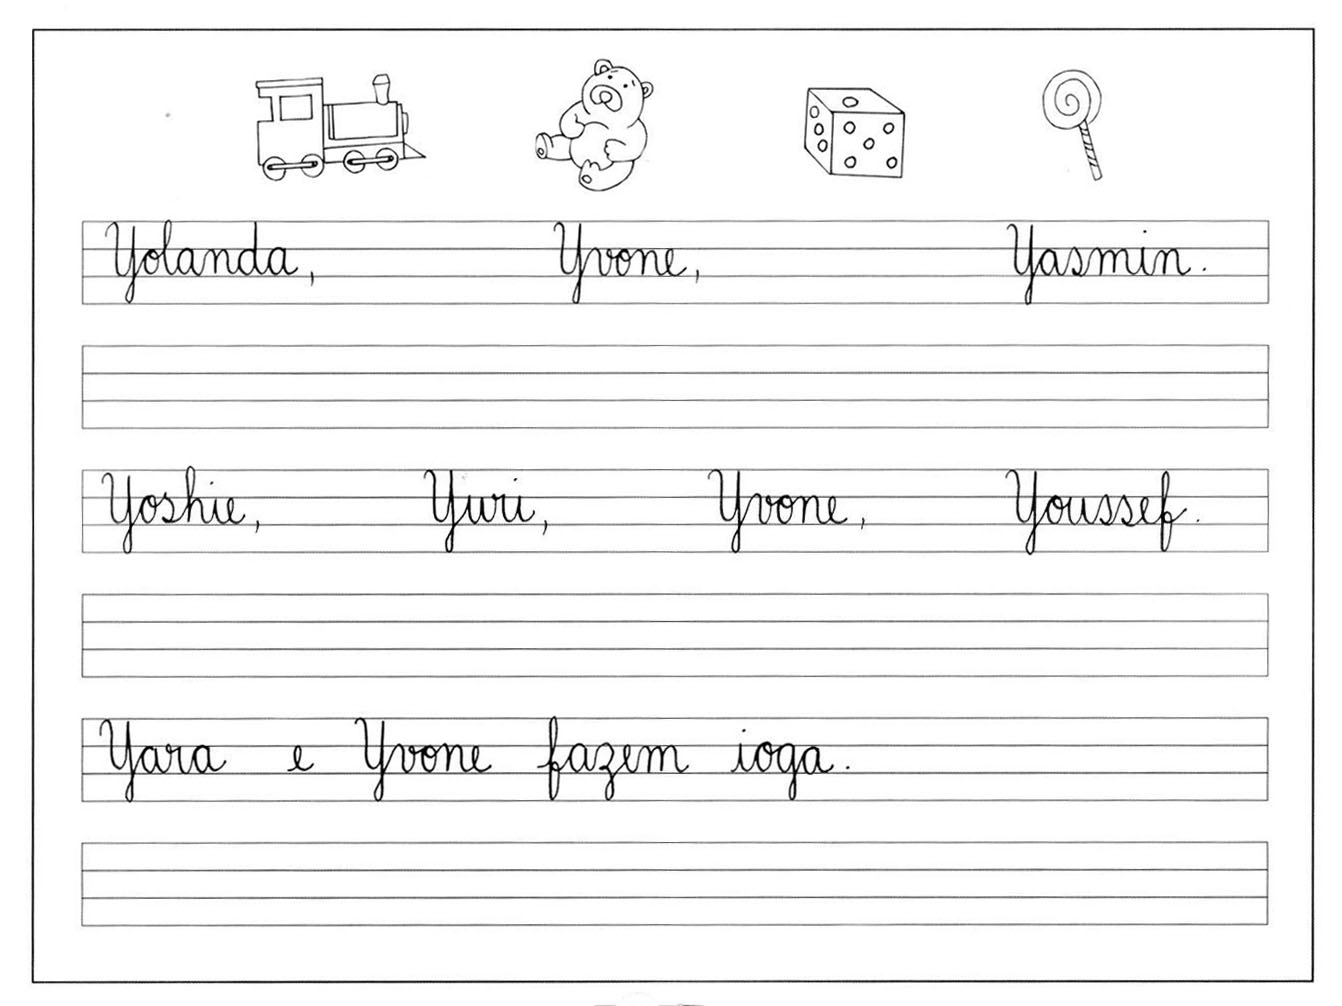 Yolanda, Yvone, Yasmin.
Yoshie, Yuri, Yvone, Youssef.
Yara e Yvone fazem ioga.